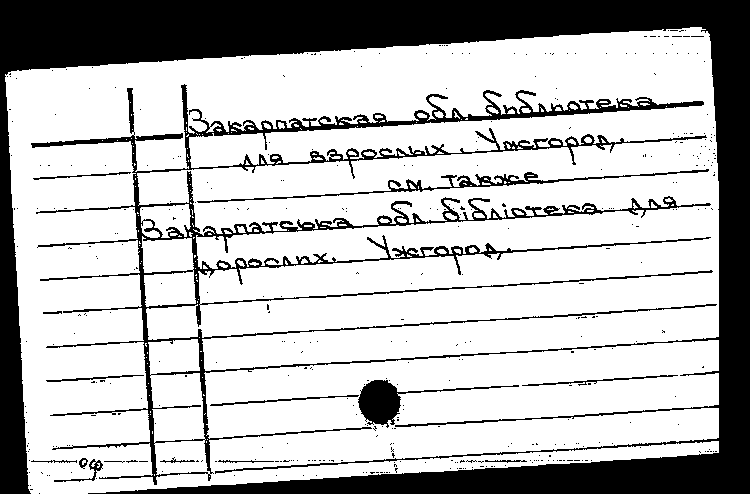 Закарпатская обл. библиотека
для взрослых. Ужгород.
см. также
Закарпатська обл. бібліотека для
дорослих. Ужгород.
оф